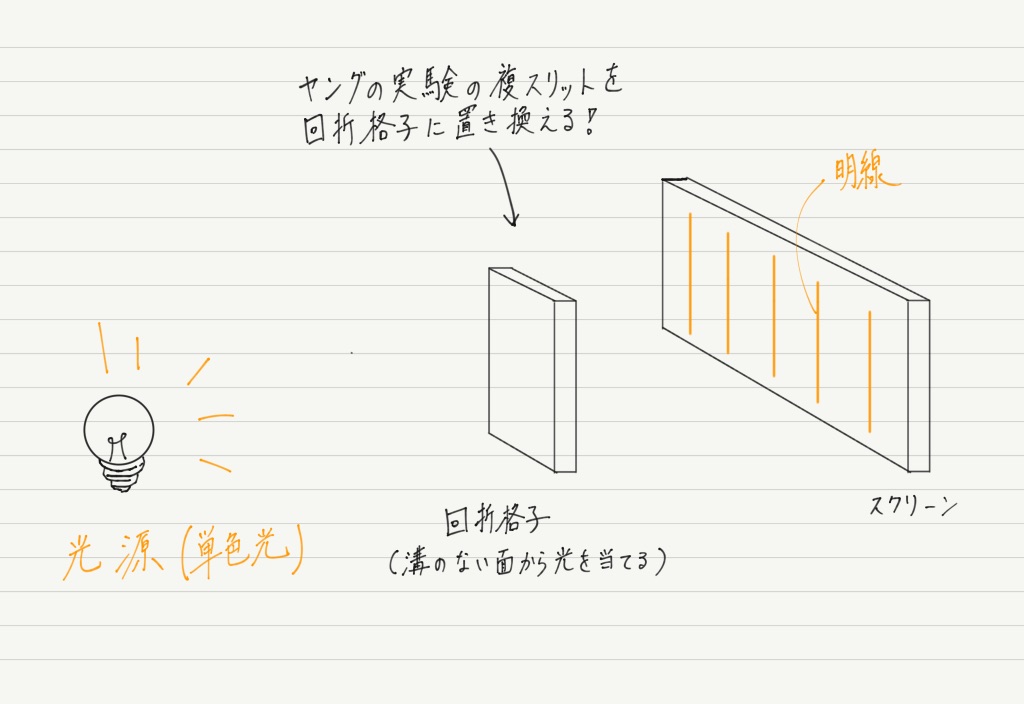 ヤングの実験の複スリットを
回折格子に置き換える!
明線
スクリーン
回折格子
(溝のない面から光を当てる)
光源(単色光)